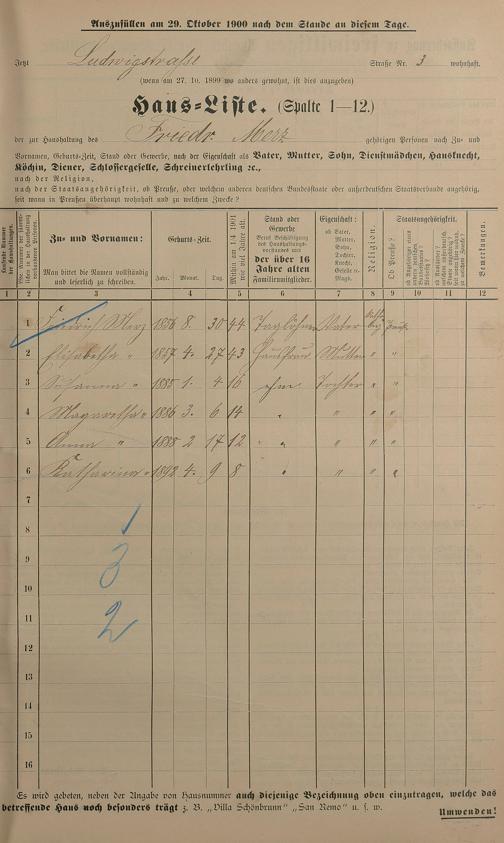 Auszufüllen am 29. Oktober 1900 nach dem Stande an diesem Tage.
Jetzt Ludwigstraße Straße Nr. 3 wohnhaft.
(wenn am 27. 10. 1899 wo anders gewohnt, ist dies anzugeben)
Haus=Liste. (Spalte 1—12.)
der zur Haushaltung des Friedr. Merz gehörigen Personen nach Zu= und
Vornamen, Geburts=Zeit, Stand oder Gewerbe, nach der Eigenschaft als Vater, Mutter, Sohn, Dienstmädchen, Hausknecht,
Köchin, Diener, Schlossergeselle, Schreinerlehrling ꝛc.,
nach der Religion,
nach der Staatsangehörigkeit, ob Preuße, oder welchem anderen deutschen Bundesstaate oder außerdeutschen Staatsverbande angehörig,
seit wann in Preußen überhaupt wohnhaft und zu welchem Zwecke?
Zu= und Vornamen:
Man bittet die Namen vollständig
und leserlich zu schreiben.
Geburts=Zeit.
Jahr. Monat. Tag.
Mithin am 1/4 1901
wie viel Jahre alt.
Stand oder
Gewerbe
der über 16
Jahre alten
Familienmitglieder.
Eigenschaft:
ob Vater,
Mutter,
Sohn,
Tochter,
Knecht,
Geselle
Magd.
Religion
Staatsangehörigkeit.
Ob Preuße?
Bemerkungen.
1 2 3 4 5 6 7 8 9 10 11 12
1 Friedrich Merz 1856 8. 30 44 Taglöhner Vater
2 Elisabetha " 1857 4. 27 43 Hausfrau Mutter " "
3 Susanna " 1885 1. 4 16 ohne Tochter " "
4 Magaretha " 1886 3. 6 14 " " " "
5 Anna " 1888 2 17 12 " " " "
6 Katharina " 1892 4. 9 8 " " " "
7
8 1
9 3
10
11 2
12
13
14
15
16
Es wird gebeten, neben der Angabe von Hausnummer auch diejenige Bezeichnung oben einzutragen, welche das
betreffende Haus noch besonders trägt z. B. „Villa Schönbrunn" „San Remo" u. s. w.
Umwenden!